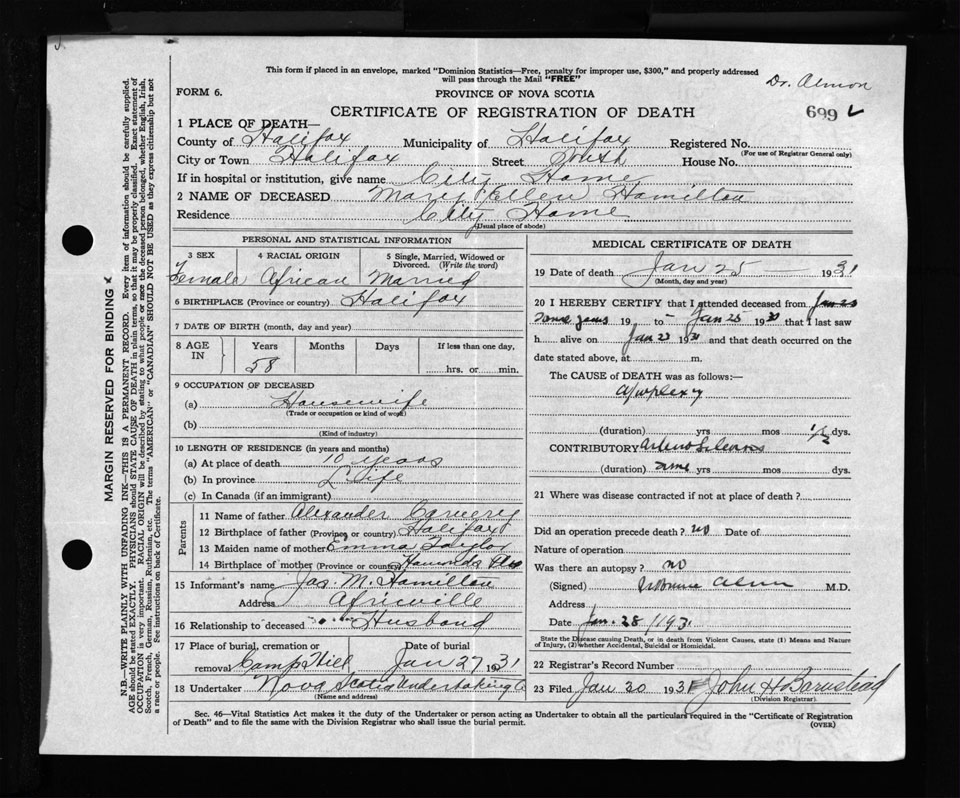 This form if placed in an envelope, marked "Dominion Statistics—Free, penalty for improper use, $300," and properly addressed
will pass through the Mail "FREE"
Dr. Almon
FORM 6.
PROVINCE OF NOVA SCOTIA
699
CERTIFICATE OF REGISTRATION OF DEATH
1 PLACE OF DEATH—
County of Halifax Municipality of Halifax Registered No.
(For use of Registrar General only)
City or Town Halifax Street South House No.
If in hospital or institution, give name City Home
2 NAME OF DECEASED Mary Ellen Hamilton
Residence City Home
(Usual place of abode)
PERSONAL AND STATISTICAL INFORMATION
3 SEX 4 RACIAL ORIGIN 5 Single, Married, Widowed or Divorced. (Write the word)
Female African Married
6 BIRTHPLACE (Province or country) Halifax
7 DATE OF BIRTH (month, day and year)
8 AGE IN Years Months Days If less than one day,
58 hrs. or min.
9 OCCUPATION OF DECEASED
(a) Housewife
(Trade or occupation or kind of work)
(b)
(Kind of industry)
10 LENGTH OF RESIDENCE (in years and months)
(a) At place of death 10 years
(b) In province Life
(c) In Canada (if an immigrant)
Parents
11 Name of father Alexander Carvery
12 Birthplace of father (Province or country) Halifax
13 Maiden name of mother Emma Taylor
14 Birthplace of mother (Province or country) Hamonds Plns
15 Informant's name Jas. M. Hamilton
Address Africville
16 Relationship to deceased Husband
17 Place of burial, cremation or removal Camp Hill Date of burial Jan 27 1931
18 Undertaker Nova Scotia Undertaking Co
(Name and address)
MEDICAL CERTIFICATE OF DEATH
19 Date of death Jan 25 — 1931
(Month, day and year)
20 I HEREBY CERTIFY that I attended deceased from
some years 19 to Jan 25 1930 that I last saw
h alive on Jan 23 1930 and that death occurred on the
date stated above, at m.
The CAUSE of DEATH was as follows:—
Apoplexy
(duration) yrs mos 1/2 dys.
CONTRIBUTORY Arteriosclerosis
(duration) some yrs mos dys.
21 Where was disease contracted if not at place of death?
Did an operation precede death? no Date of
Nature of operation
Was there an autopsy? no
(Signed) Almon M.D.
Address
Date Jan. 28 1931
State the Disease causing Death, or in death from Violent Causes, state (1) Means and Nature
of Injury, (2) whether Accidental, Suicidal or Homicidal.
22 Registrar's Record Number
23 Filed Jan 30 1931 John H Barnstead
(Division Registrar)
Sec. 46—Vital Statistics Act makes it the duty of the Undertaker or person acting as Undertaker to obtain all the particulars required in the "Certificate of Registration
of Death" and to file the same with the Division Registrar who shall issue the burial permit.
(OVER)
MARGIN RESERVED FOR BINDING
N.B.—WRITE PLAINLY WITH UNFADING INK—THIS IS A PERMANENT RECORD. Every item of information should be carefully supplied.
AGE should be stated EXACTLY. PHYSICIANS should STATE CAUSE OF DEATH in plain terms, so that it may be properly classified. Exact statement of
OCCUPATION is very important. RACIAL ORIGIN will be described by stating to what people or race the deceased person belonged, whether English, Irish,
Scotch, French, German, Russian, Ruthenian, etc. The terms "AMERICAN" or "CANADIAN" SHOULD NOT BE USED as they express citizenship but not
a race or people. See instructions on back of Certificate.